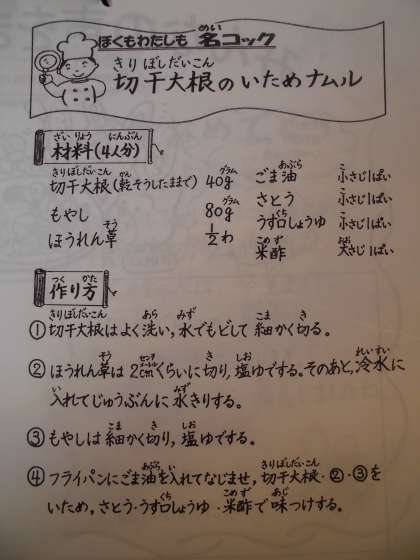 ぼくもわたしも 名コック
切干大根のいためナムル
材料(4人分)
切干大根(乾そうしたままで) 40g ごま油 小さじ1ぱい
さとう 小さじ1ぱい
もやし 80g うす口しょうゆ 小さじ1ぱい
ほうれん草 1/2わ 米酢 大さじ1ぱい
作り方
①切干大根はよく洗い,水でもどして細かく切る。
②ほうれん草は2cmくらいに切り,塩ゆでする。そのあと,冷水に
入れてじゅうぶんに水きりする。
③もやしは細かく切り,塩ゆでする。
④フライパンにごま油を入れてなじませ,切干大根・②・③を
いため,さとう・うす口しょうゆ・米酢で味つけする。